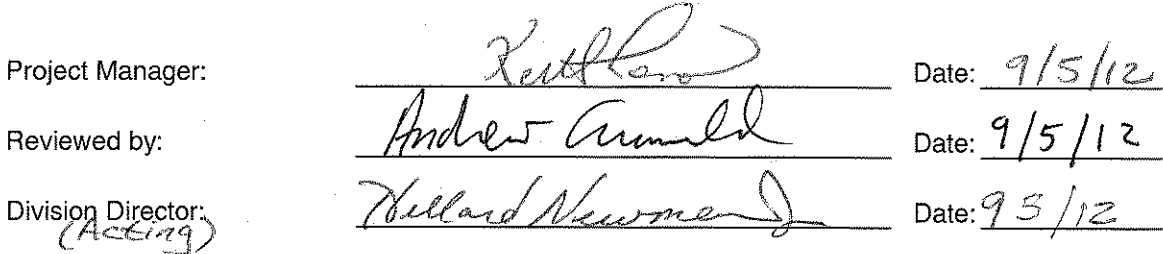 Project Manager: Keith Date: 9/5/12
Reviewed by: Andrew Date: 9/5/12
Division Director: Willard Newman Jr Date: 9 5/12
(Acting)